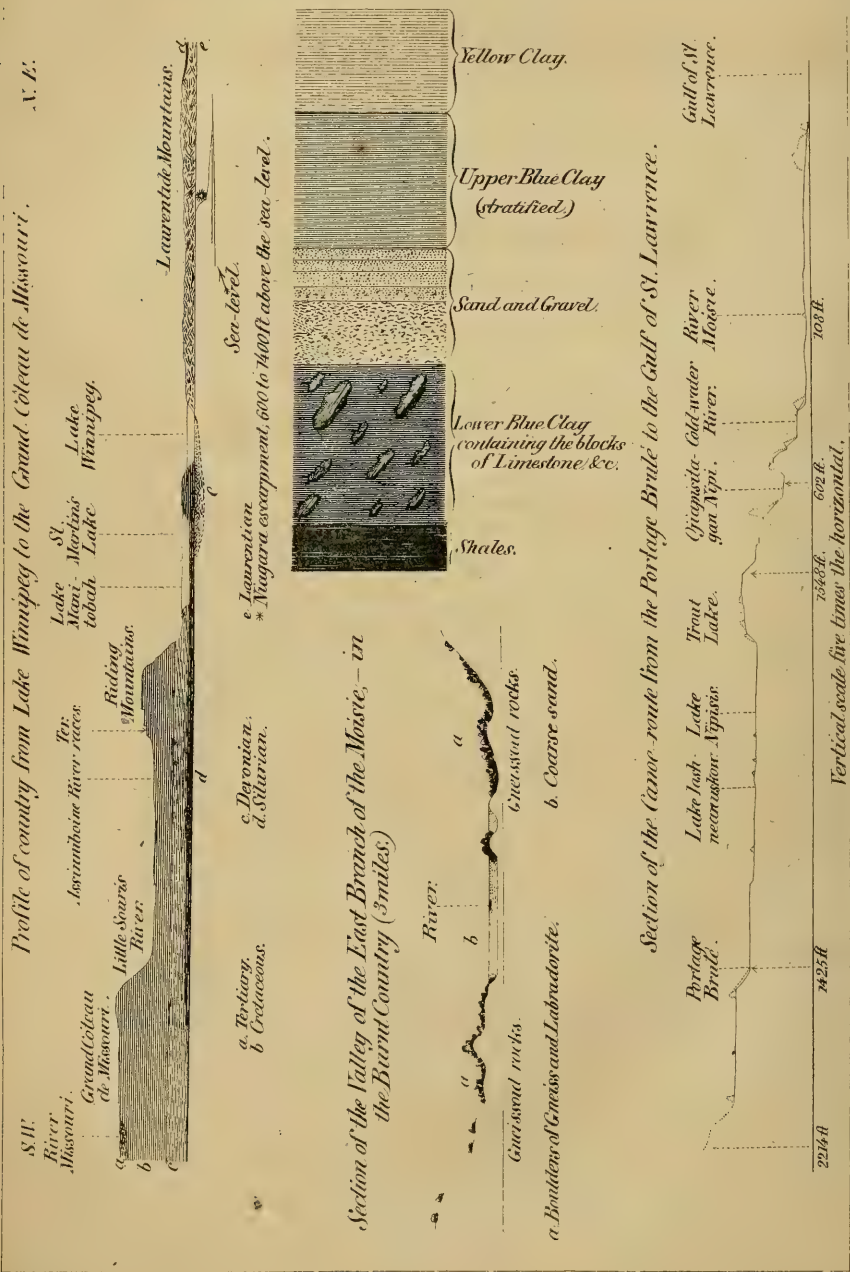 Profile of country from Lake Winnipeg to the Grand Côteau de Missouri.
S.W.
N.E.
River
Missouri.
Grand Côteau
de Missouri.
Little Souris
River.
Assinniboine River
Ter-
races.
Riding
Mountains.
Lake
Mani-
tobah
St
Martins
Lake
Lake
Winnipeg.
Laurentide Mountains.
a
b
c
d
c
d
e
Sea-level.
a. Tertiary.
b Cretaceous.
c. Devonian.
d. Silurian.
e Laurentian
* Niagara escarpment, 600 to 1400 ft above the sea-level.
Section of the Valley of the East Branch of the Moisie,- in
the Burnt Country (3 miles.)
River.
a
b
a
Gneissoid rocks.
Gneissoid rocks.
a Boulders of Gneiss and Labradorite.
b. Coarse sand.
Yellow Clay.
Upper Blue Clay
(stratified.)
Sand and Gravel.
Lower Blue Clay
containing the blocks
of Limestone/&c.
Shales.
Section of the Canoe-route from the Portage Brulé to the Gulf of St. Lawrence.
Portage
Brulé.
Lake
Nipisis.
Trout
Lake.
gan Nipi.
Cold-water
River.
River
Moisie.
Gulf of St
Lawrence.
2214 ft
1425 ft
1548 ft.
602 ft.
108 ft.
Vertical scale five times the horizontal.